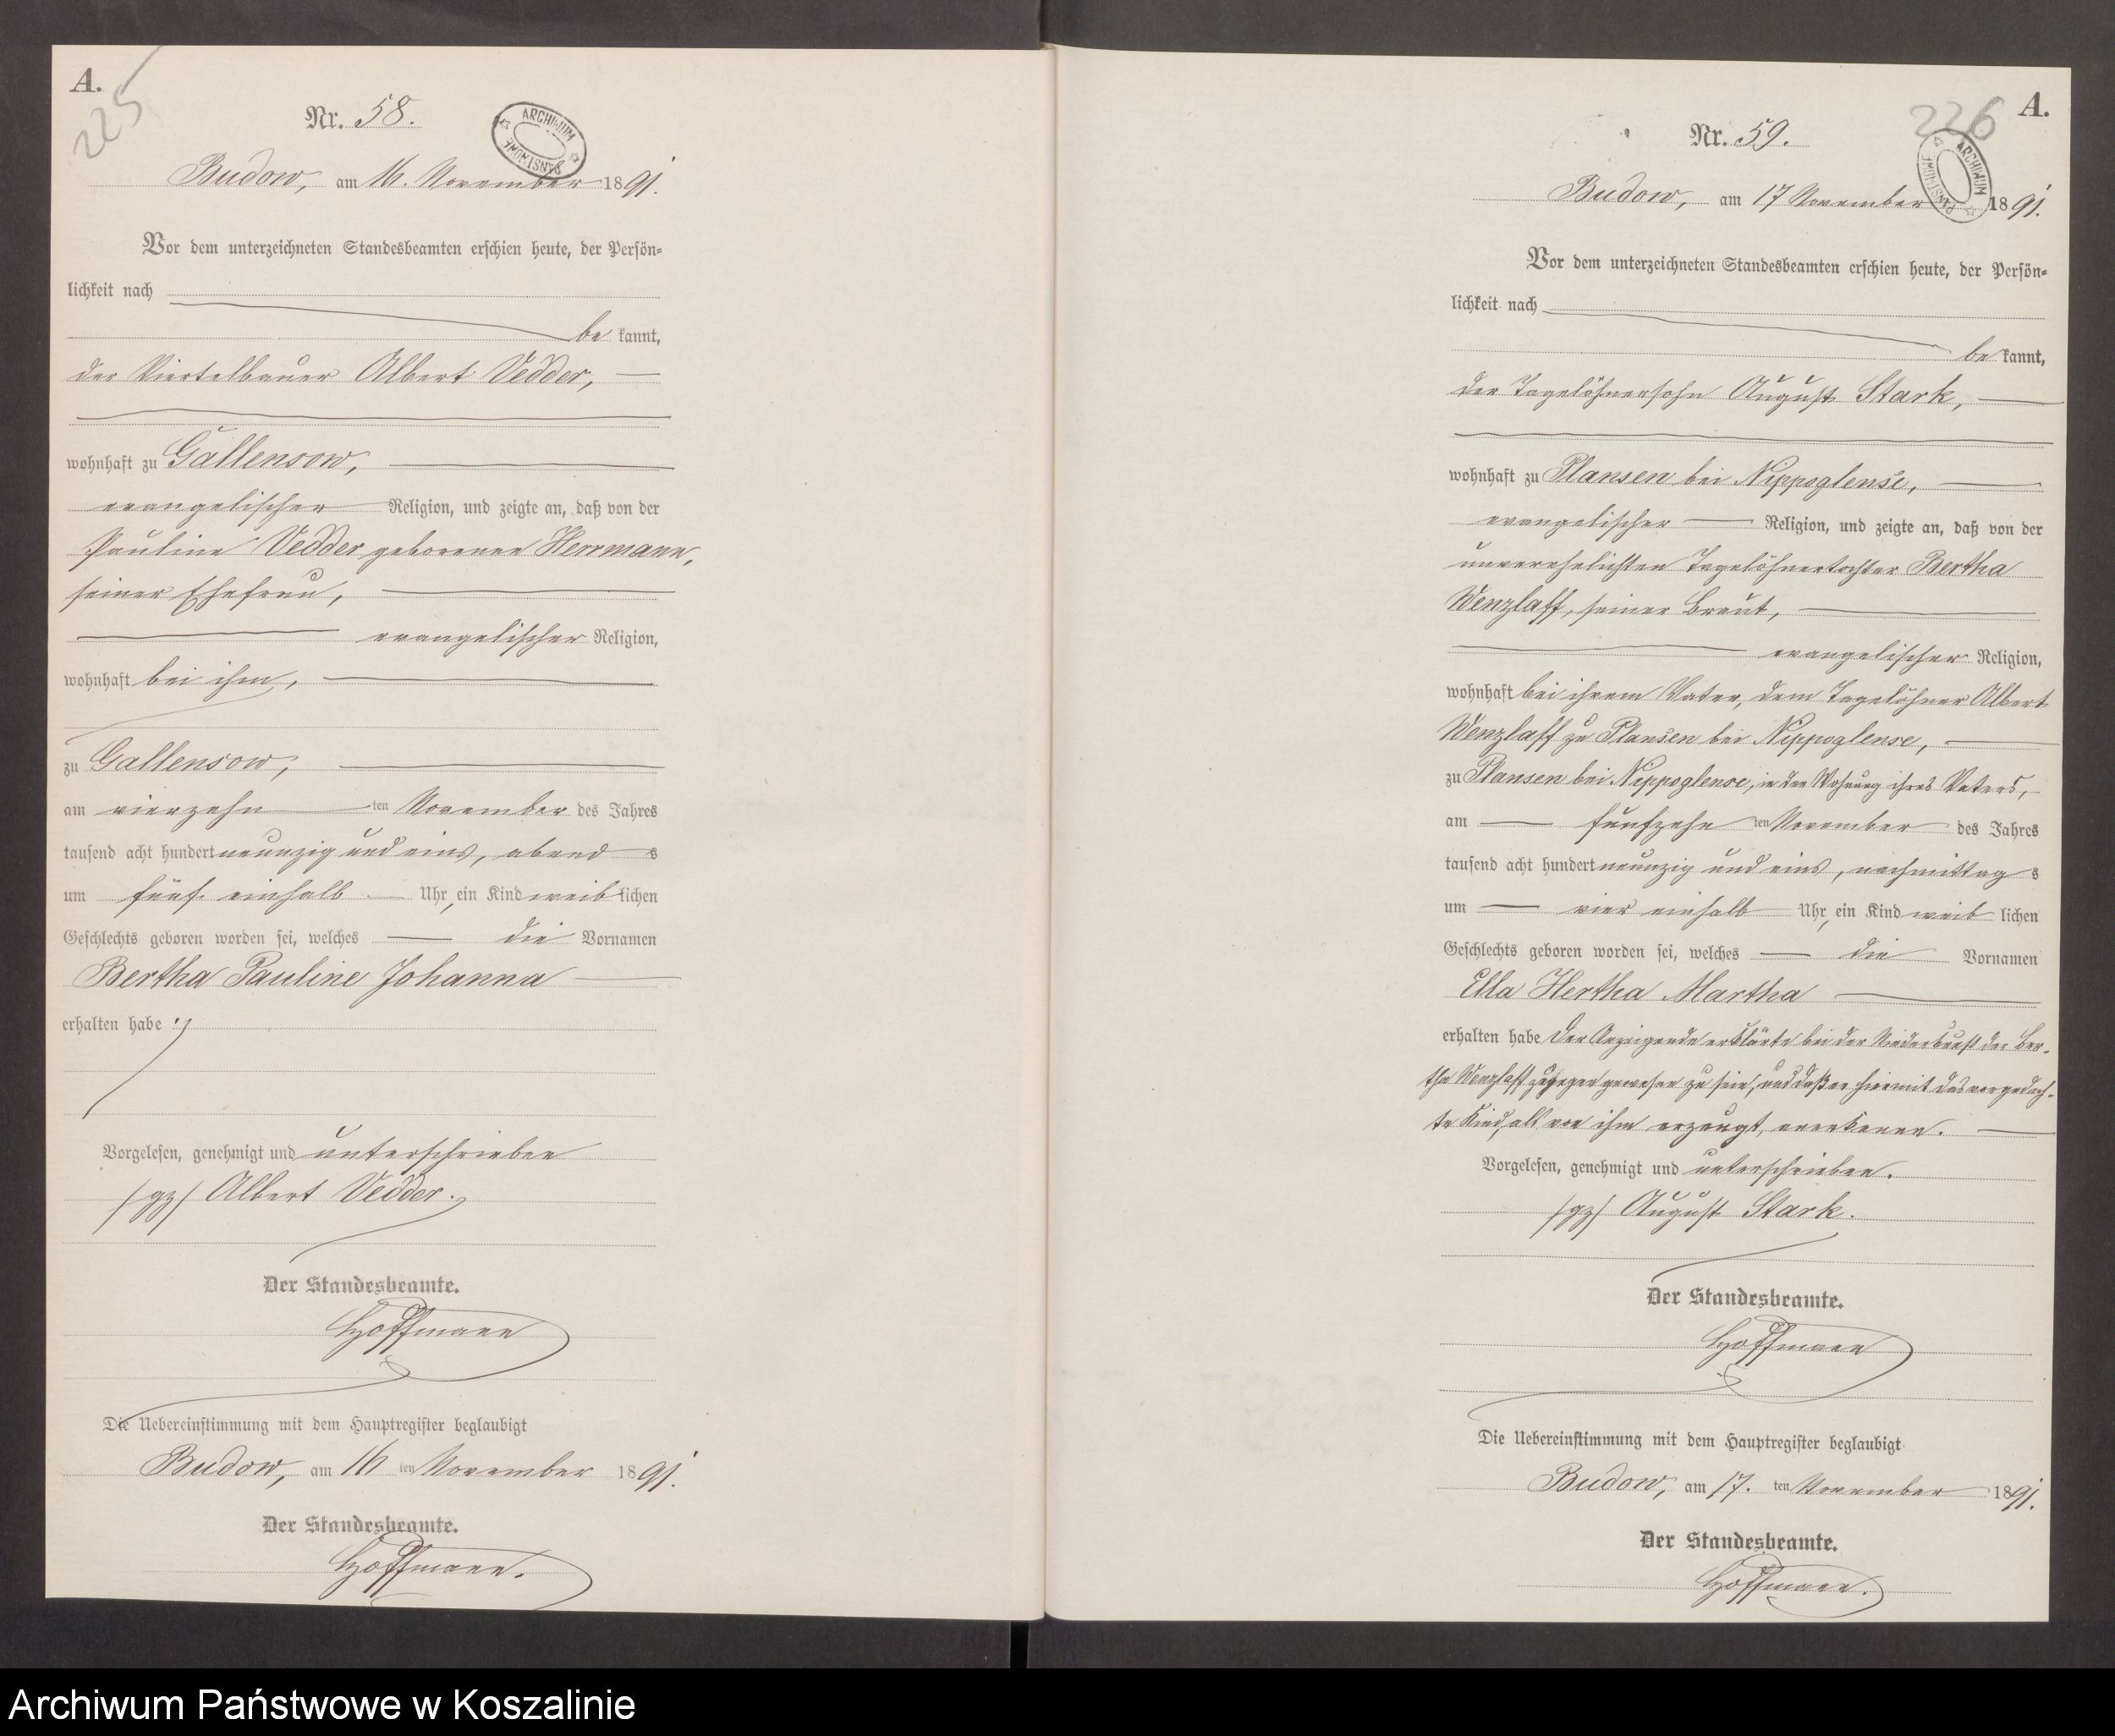 A.
225
Nr. 58.
ARCHIWUM PAŃSTWOWE
Budow, am 16. November 1891.
Vor dem unterzeichneten Standesbeamten erschien heute, der Persön=
lichkeit nach
be kannt,
der Viertelbauer Albert Vedder,
wohnhaft zu Gallensow,
evangelischer Religion, und zeigte an, daß von der
Pauline Vedder geborenen Herrmann,
seiner Ehefrau,
evangelischer Religion,
wohnhaft bei ihm,
zu Gallensow,
am vierzehn ten November des Jahres
tausend acht hundert neunzig und eins, abend s
um fünf einhalb Uhr, ein Kind weib lichen
Geschlechts geboren worden sei, welches die Vornamen
Bertha Pauline Johanna
erhalten habe
Vorgelesen, genehmigt und unterschrieben
/gz/ Albert Vedder.
Der Standesbeamte.
Hoffmann
Die Uebereinstimmung mit dem Hauptregister beglaubigt
Budow, am 16 ten November 1891.
Der Standesbeamte.
Hoffmann.
A.
226
Nr. 59.
ARCHIWUM PAŃSTWOWE
Budow, am 17 November 1891.
Vor dem unterzeichneten Standesbeamten erschien heute, der Persön=
lichkeit nach
be kannt,
der Tagelöhnersohn August Stark,
wohnhaft zu Plansen bei Nippoglense,
evangelischer Religion, und zeigte an, daß von der
unverehelichten Tagelöhnertochter Bertha
Wenzlaff, seiner Braut,
evangelischer Religion,
wohnhaft bei ihrem Vater, dem Tagelöhner Albert
Wenzlaff zu Plansen bei Nippoglense,
zu Plansen bei Nippoglense, in der Wohnung ihres Vaters,
am fünfzehn ten November des Jahres
tausend acht hundert neunzig und eins, nachmittag s
um vier einhalb Uhr, ein Kind weib lichen
Geschlechts geboren worden sei, welches die Vornamen
Ella Hertha Martha
erhalten habe Der Anzeigende erklärte bei der Niederkunft der Ber-
tha Wenzlaff zugegen gewesen zu sein, und daß er hiermit das vorgedach-
te Kind, als von ihm erzeugt, anerkenne.
Vorgelesen, genehmigt und unterschrieben.
/gz/ August Stark.
Der Standesbeamte.
Hoffmann
Die Uebereinstimmung mit dem Hauptregister beglaubigt
Budow, am 17. ten November 1891.
Der Standesbeamte.
Hoffmann.
Archiwum Państwowe w Koszalinie